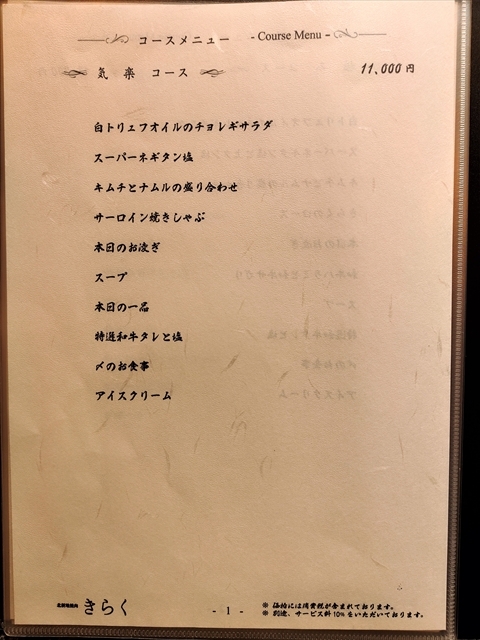 コースメニュー - Course Menu -
気楽 コース 11,000円
白トリュフオイルのチョレギサラダ
スーパーネギタン塩
キムチとナムルの盛り合わせ
サーロイン焼きしゃぶ
本日のお凌ぎ
スープ
本日の一品
特選和牛タレと塩
〆のお食事
アイスクリーム
きらく
- 1 -
※ 価格には消費税が含まれております。
※ 別途、サービス料10%をいただいております。